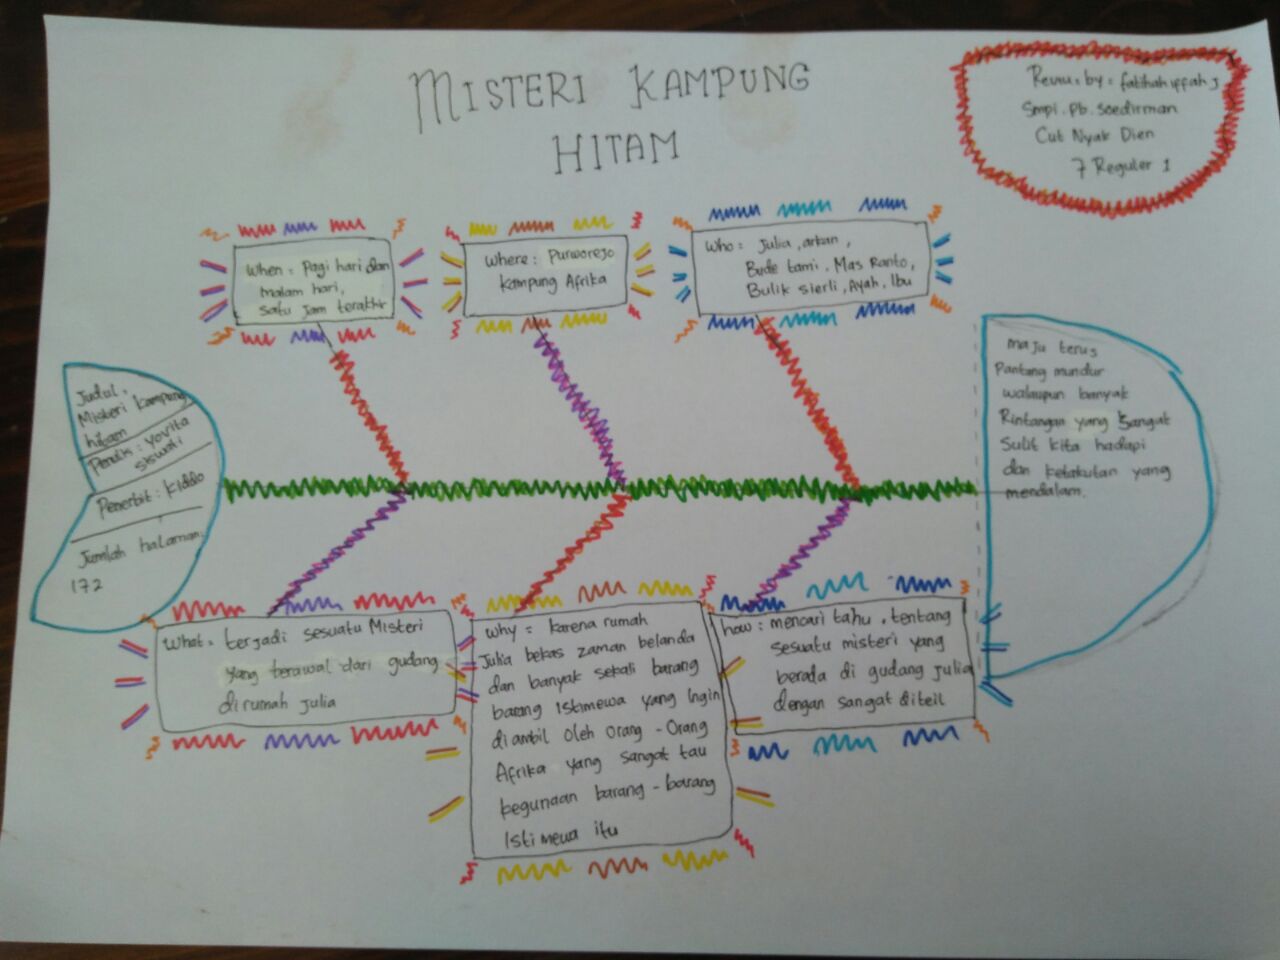 MISTERI KAMPUNG
HITAM
Reviu : by : fatihah iffah J
Smpi . Pb . Soedirman
Cut Nyak Dien
7 Reguler 1
When : Pagi hari dan
malam hari,
satu jam terakhir
Where : Purworejo
Kampung Afrika
Who : Julia , arkan ,
Bude tami , Mas Ranto,
Bulik sierli , Ayah , Ibu
Judul :
Misteri kampung
hitam
Penulis : Yovita
siswati
Penerbit : Kiddo
Jumlah halaman :
172
maju terus
Pantang mundur
walaupun banyak
Rintangan yang Sangat
Sulit kita hadapi
dan ketakutan yang
mendalam.
What : terjadi sesuatu Misteri
yang terawal dari gudang
di rumah Julia
Why : karena rumah
Julia bekas zaman belanda
dan banyak sekali barang
barang Istimewa yang Ingin
di ambil oleh Orang - Orang
Afrika yang sangat tau
kegunaan barang - barang
Istimewa itu
how : mencari tahu , tentang
sesuatu misteri yang
berada di gudang Julia
dengan sangat diteil